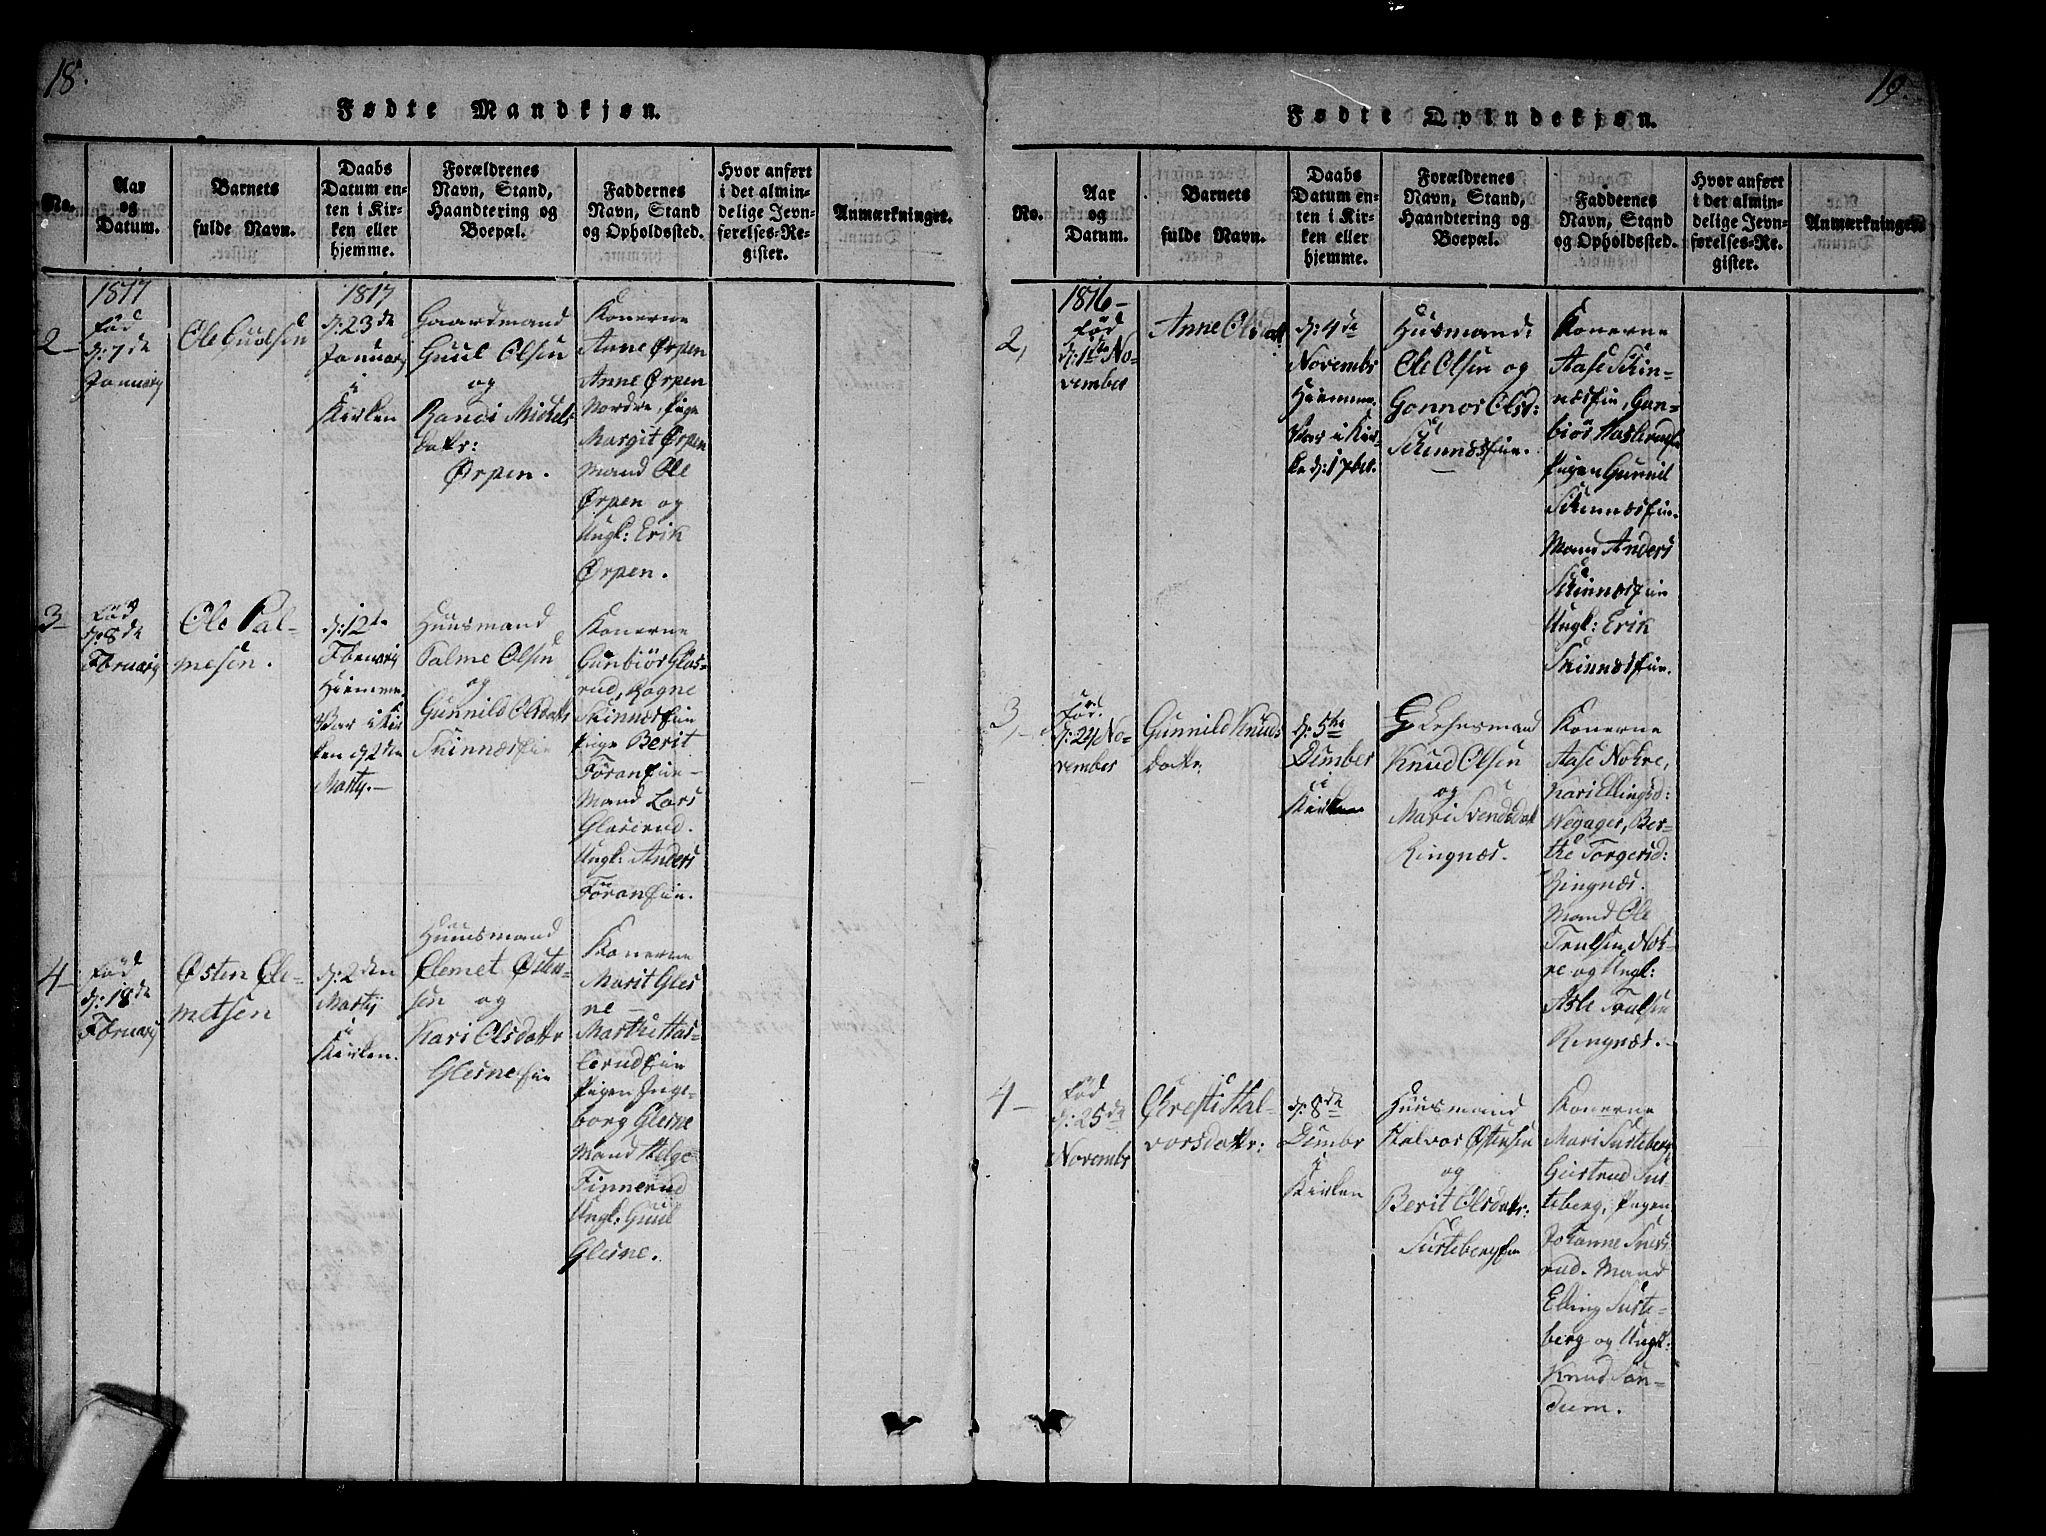 18.
Fødte Mandkjøn.
No.
Aar
og
Datum.
Barnets
fulde Navn.
Daabs
Datum en-
ten i Kir-
ken eller
hjemme.
Forældrenes
Navn, Stand,
Haandtering og
Boepæl.
Faddernes
Navn, Stand
og Opholdssted.
Hvor anført
i det almin-
delige Jevn-
førelses-Re-
gister.
Anmærkninger.
2
1817
Fød
d: 7de
Januarij
Ole Guulsen
1817
d: 23de
Januarij
i
Kirken
Gaardmand
Guul Olsen
og
Randi Mickels
datr:
Ørpen.
Konerne
Anne Ørpen
Anne Ørpen
Nordre, Pige
Margit Ørpen
Mand Ole
Ørpen og
Ungk: Erik
Ørpen.
3
Fød
d: 8de
Februarij
Ole Pal-
mesen.
d: 12te
Februarij
Hiemme.
Var i Kir-
ken d 2den
Martij.
Huusmand
Palme Olsen
og
Gunnild Olsdatr
Skinneseie
Konerne
Gunbiør Glas-
rud, Ragne
Skinneseie
Pige Berit
Føraneie
Mand Lars
Glaserud.
Ungk: Anders
Føraneie.
4
Fød
d: 18de
Februarij
Østen Cle-
metsen
d: 2den
Martij
i
Kirken.
Huusmand
Clemet Østen-
sen og
Kari Olsdattr
Glesneeie
Konerne
Marit Gles
ne
Marthe Has-
lerudeie
Pigen Inge-
borg Glesne
Mand Helge
Finnerud
Ungk: Guul
Glesne.
19.
Fødte Qvindekjøn.
No.
Aar
og
Datum.
Barnets
fulde Navn.
Daabs
Datum en-
ten i Kir-
ken eller
hjemme.
Forældrenes
Navn, Stand,
Haandtering og
Boepæl.
Faddernes
Navn, Stand
og Opholdssted.
Hvor anført
i det almin-
delige Jevn-
førelses-Re-
gister.
Anmærkninger.
2,
1816
Fød
d: 1ste No-
vember
Anne Olsdatt:
d: 4de
Novembr
Hiemme.
Var i Kir-
ke d: 17 ber.
Husmand:
Ole Olsen og
Gonnor Olsd:
Skinneseie.
Konerne
Aase Skin-
neseie, Gun-
biør Haslerud
Pigen Gunnil
Skinneseie.
Mand Anders
Skinneseie
Ungk: Erik
Skinneseie.
3,
Fød.
d: 24 No-
vember
Gunnild Knuds
dattr
d: 5te
Dember
i
Kirken
Knud Olsen
og
Mari Svendsdat
Ringnæs.
Konerne
Aase Nokre,
Kari Ellingsd:
Wegager, Ber-
the Torgersd:
Ringnæs.
Mand Ole
Trulsen Nok-
re og Ungk:
Asle Trulsen
Ringnæs.
4
Fød
d: 25de
Novembr
Chresti Hal-
vorsdattr:
d: 8de
Dembr
i
Kirken
Huusmand
Halvor Østensen
og
Berit Olsdatr:
Surtebergeie
Konerne
Mari Surteberg
Giertrud Sur-
teberg, Pigen
Johanne Sners
rud. Mand
Elling Surte-
berg og Ungk:
Knud Son-
dum.